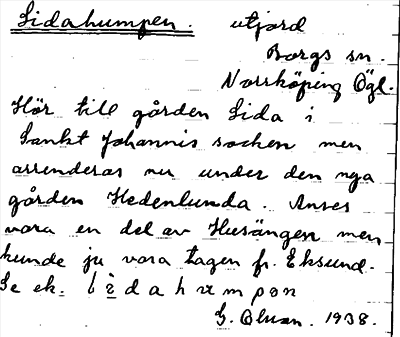 Lidahumpen. utjord
Borgs sn.
Norrköping Ögl.
Hör till gården Lida i
Sankt Johannis socken men
arrenderas nu under den nya
gården Hedenlunda. Anses
vara en del av Husängen men
kunde ju vara tagen fr. Eksund.
Se ek. l ì d a h u m p ə n
G. Olson. 1938.